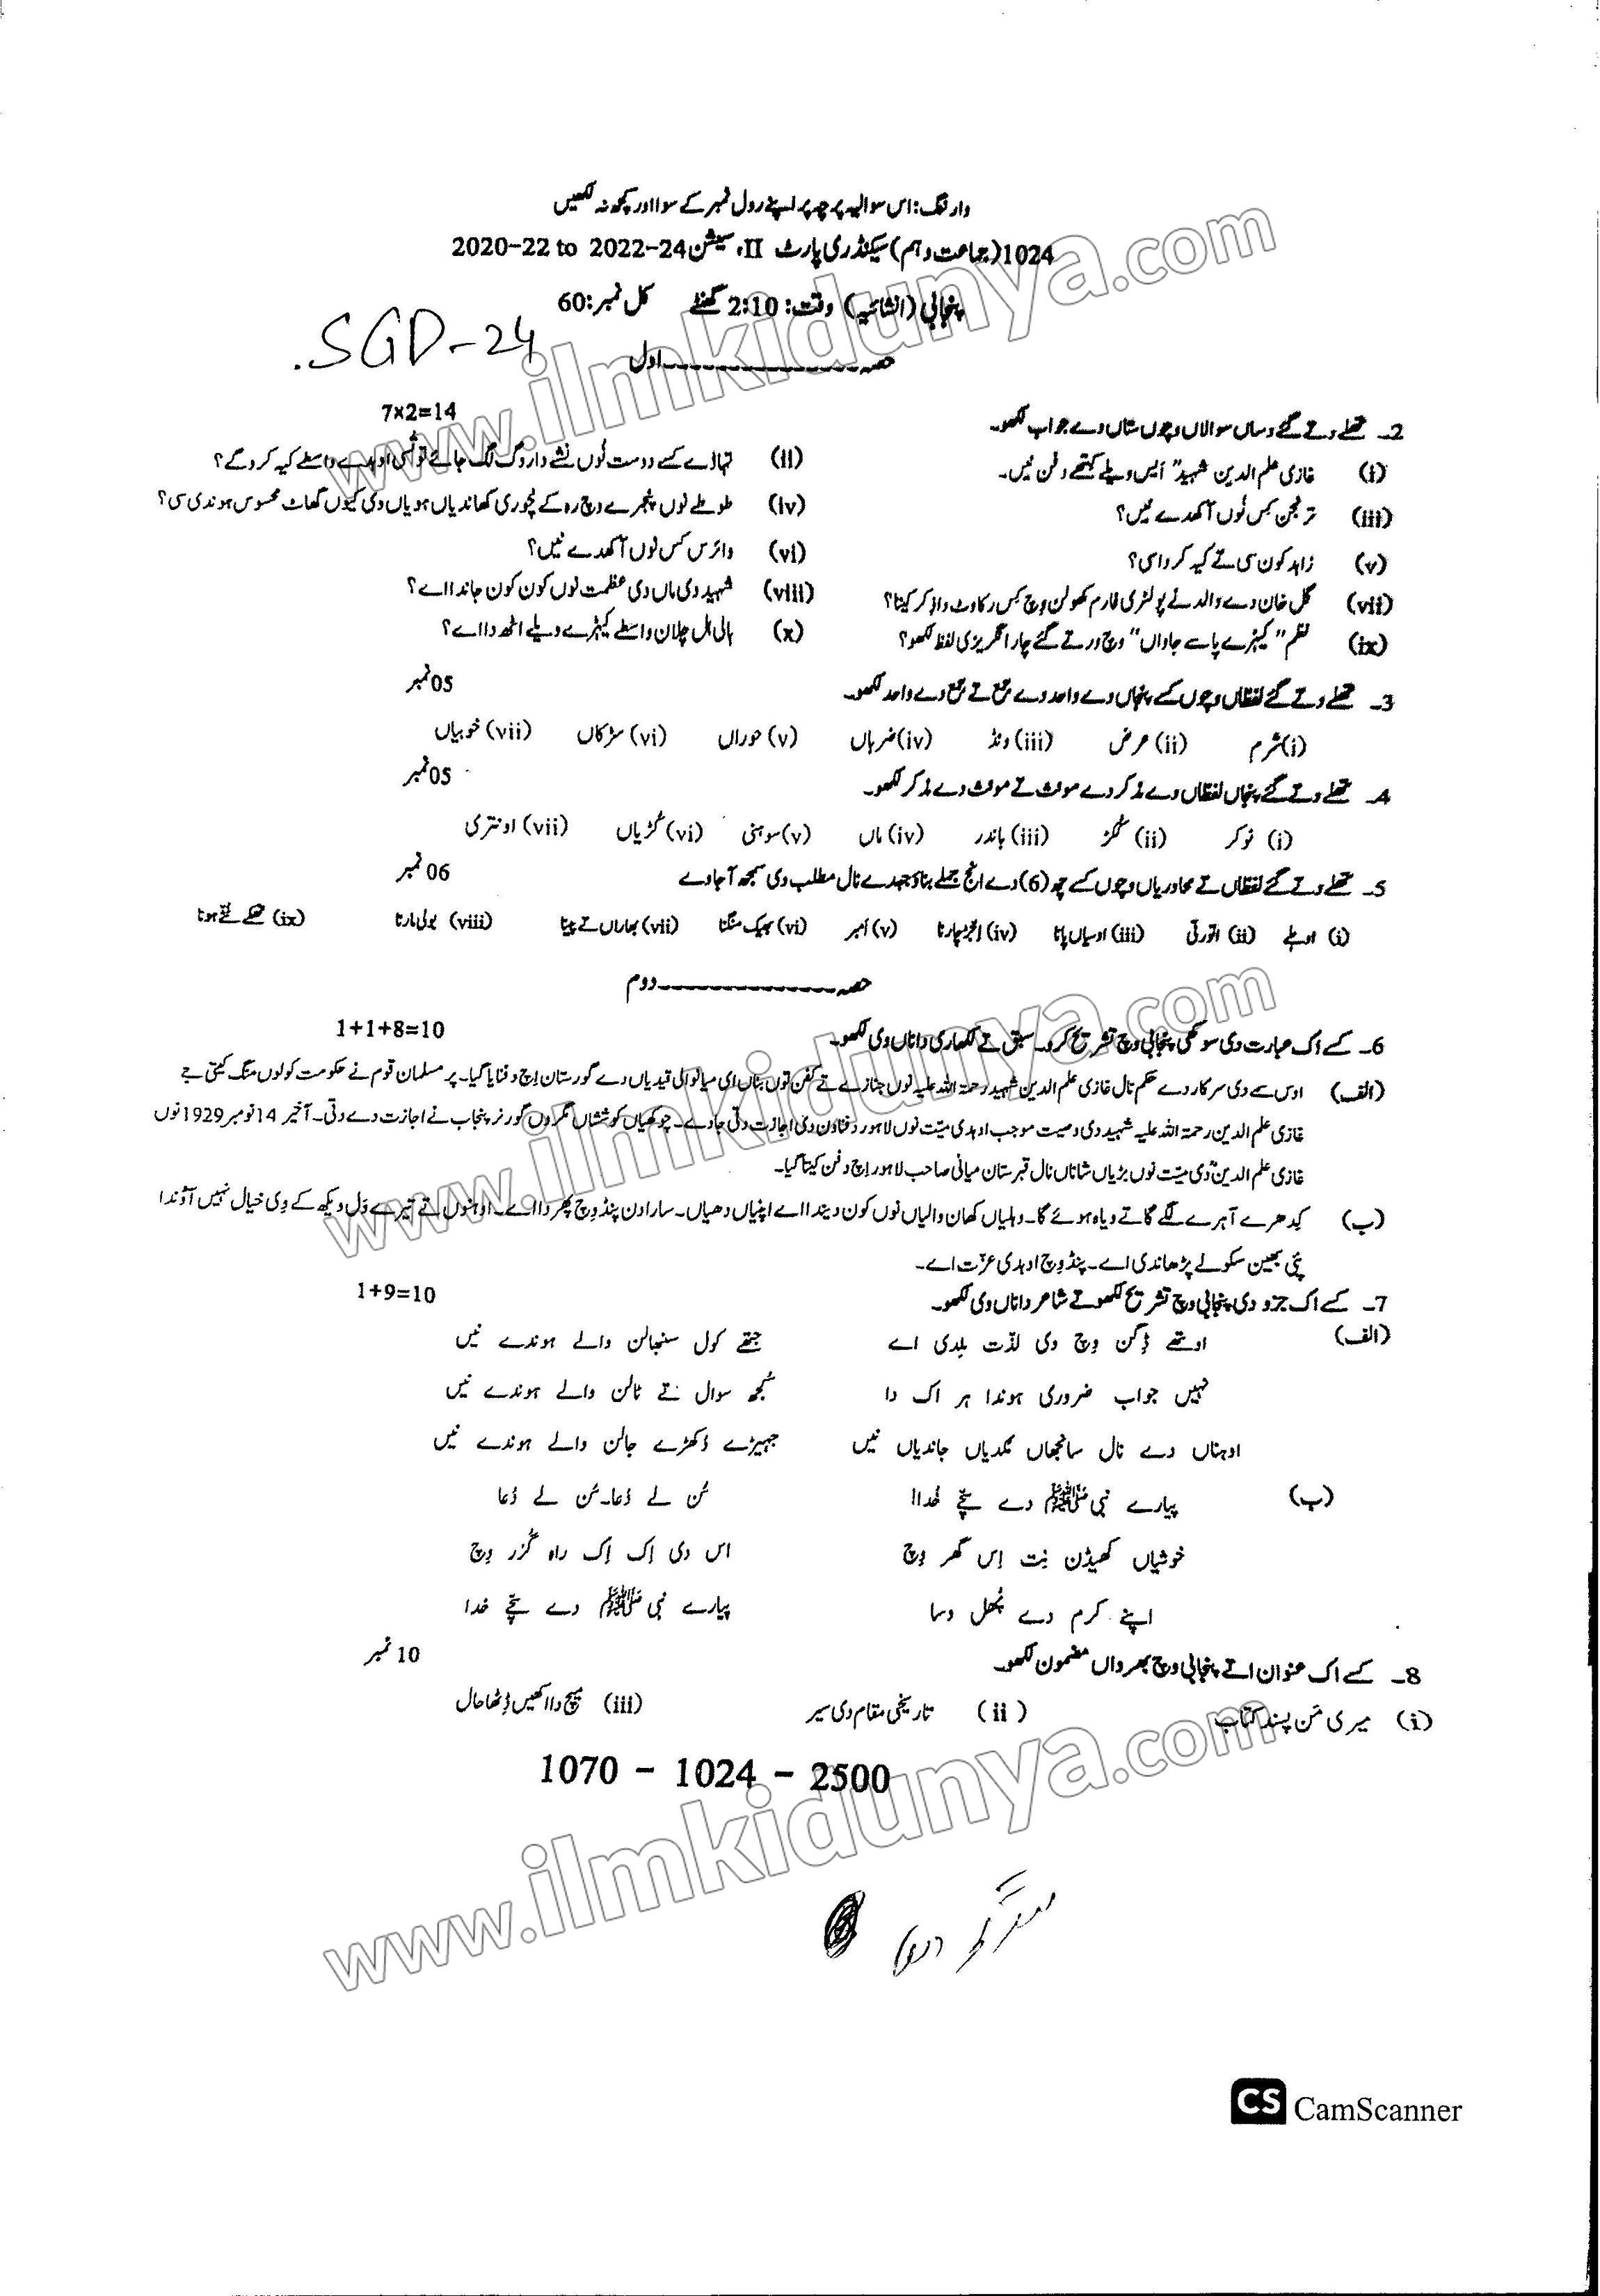 وارننگ: اس سوالیہ پرچہ پر اپنے رول نمبر کے سوا اور کچھ نہ لکھیں
1024 (جماعت دہم) سیکنڈری پارٹ II، سیشن 2020-22 to 2022-24
پنجابی (انشائیہ) وقت: 2:10 گھنٹے کل نمبر: 60
SGD-24
حصہ ---------------- اول
2۔ تھلے دتے گئے دساں سوالاں وچوں ستاں دے جواب لکھو۔ 7×2=14
(i) غازی علم الدین شہیدؒ ایس ویلے کتھے دفن نیں۔ (ii) تہاڈے کسے دوست نُوں نشے دا روگ لگ جائے تُوں تُسی اوہدے واسطے کیہ کرو گے؟
(iii) ترنجن کِس نُوں آکھدے نیں؟ (iv) طوطے نوں پنجرے وچ رہ کے چُوری کھاندیاں ہویاں وی کیوں گھاٹ محسوس ہوندی سی؟
(v) زاہد کون سی تے کیہ کردا سی؟ (vi) وائرس کس نوں آکھدے نیں؟
(vii) گل خان دے والد نے پولٹری فارم کھولن وچ کِس رکاوٹ دا ذکر کیتا؟ (viii) شہید دی ماں دی عظمت نوں کون کون جاندا اے؟
(ix) نظم "کیہڑے پاسے جاواں" وچ ورتے گئے چار انگریزی لفظ لکھو؟ (x) ہالی ہل چلان واسطے کیہڑے ویلے اٹھدا اے؟
3۔ تھلے دتے گئے لفظاں وچوں کسے پنجاں دے واحد دے جمع تے جمع دے واحد لکھو۔ 05 نمبر
(i) شرم (ii) عرض (iii) ونڈ (iv) ضرباں (v) حوراں (vi) سڑکاں (vii) خوبیاں
4۔ تھلے دتے گئے پنجاں لفظاں دے مذکر دے مونث تے مونث دے مذکر لکھو۔ 05 نمبر
(i) نوکر (ii) ککڑ (iii) باندر (iv) ماں (v) سوہنی (vi) کُڑیاں (vii) اونتری
5۔ تھلے دتے گئے لفظاں تے محاوریاں وچوں کسے چھ (6) دے انج جملے بناؤ جیہدے نال مطلب دی سمجھ آ جاوے 06 نمبر
(i) اوہلے (ii) اتورتی (iii) اوسیاں پانا (iv) اجڑ چارنا (v) امبر (vi) بھیک منگنا (vii) بھاراں تے پینا (viii) بولی مارنا (ix)
حصہ ---------------- دوم
6۔ کسے اک عبارت دی سوکھی پنجابی وچ تشریح کرو۔ سبق تے لکھاری دا ناں وی لکھو۔ 1+1+8=10
(الف) اوس سے دی سرکار دے حکم نال غازی علم الدین شہید رحمۃ اللہ علیہ نوں جنازے تے کفن توں بناں ای میانوالی قیدیاں دے گورستان اِچ دفنایا گیا۔ پر مسلمان قوم نے حکومت کولوں منگ کیتی جے
غازی علم الدین رحمۃ اللہ علیہ شہید دی وصیت موجب اوہدی میّت نوں لاہور دفناون دی اجازت دتی جاوے۔ چوکھیاں کوششاں مگروں گورنر پنجاب نے اجازت دے دتی۔ آخیر 14 نومبر 1929 نوں
غازی علم الدینؒ دی میّت نوں بڑیاں شاناں نال قبرستان میانی صاحب لاہور اِچ دفن کیتا گیا۔
(ب) کِدھرے آہرے لگے گا تے ویاہ ہوئے گا۔ ویلیاں کھان والیاں نوں کون دیندا اے اپنیاں دھیاں۔ سارا دن پنڈ وِچ پھردا اے۔ اوہنوں تے تیرے وَل ویکھ کے وِی خیال نہیں آؤندا
پئی بھین سکولے پڑھاندی اے۔ پنڈ وِچ اوہدی عزّت اے۔
7۔ کسے اک جزو دی پنجابی وچ تشریح لکھو تے شاعر دا ناں وی لکھو۔ 1+9=10
(الف) اوتھے ڈِگن وِچ وی لذّت ہلدی اے جتھے کول سنبھالن والے ہوندے نیں
نہیں جواب ضروری ہوندا ہر اک دا کُجھ سوال تے ٹالن والے ہوندے نیں
اوہناں دے نال سانجھاں مُکدیاں جاندیاں نیں جیہڑے دُکھڑے جالن والے ہوندے نیں
(ب) پیارے نبی ﷺ دے سچّے خُدا! سُن لے دُعا۔ سُن لے دُعا
خوشیاں کھیڈن نِت اِس گھر وِچ اس دی اِک اِک راہ گُزر وِچ
اپنے کرم دے پُھل وسا پیارے نبی ﷺ دے سچّے خدا
8۔ کسے اک عنوان اتے پنجابی وچ بھرواں مضمون لکھو۔ 10 نمبر
(i) میری مَن پسند کتاب (ii) تاریخی مقام دی سیر (iii) میچ دا اکھیں ڈِٹھا حال
1070 - 1024 - 2500
www.ilmkidunya.com
www.ilmkidunya.com
www.ilmkidunya.com
CS CamScanner